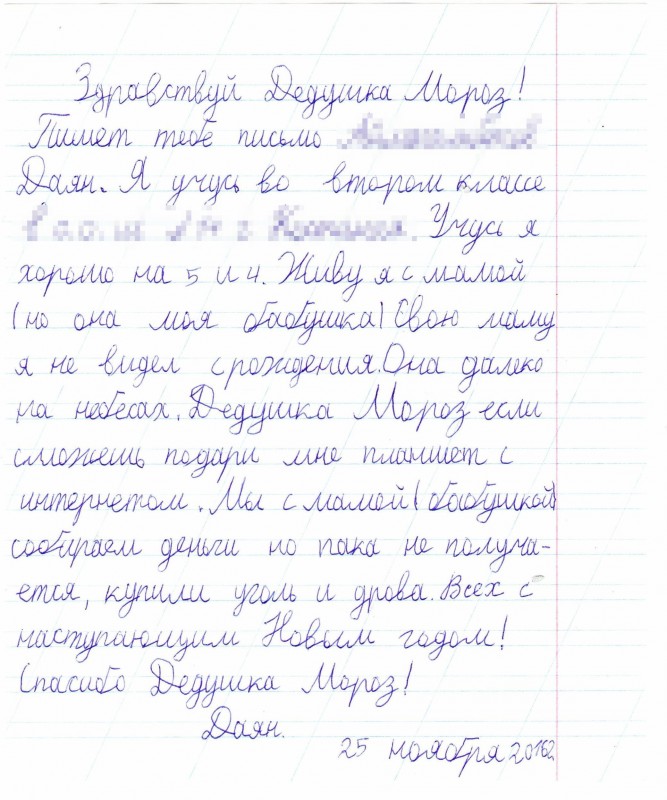 Здравствуй Дедушка Мороз!
Пишет тебе письмо
Даян. Я учусь во втором классе
Учусь я
хорошо на 5 и 4. Живу я с мамой
(но она моя бабушка) Свою маму
я не видел с рождения. Она далеко
на небесах. Дедушка Мороз если
сможешь подари мне планшет с
интернетом. Мы с мамой (бабушкой)
собираем деньги но пака не получа-
ется, купили уголь и дрова. Всех с
наступающим Новым годом!
Спасибо Дедушка Мороз!
Даян.
25 ноября 2016г